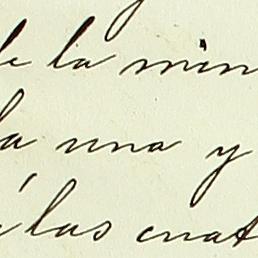 de la min
la una y
á las cuat